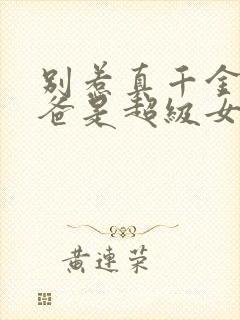 别惹真千金
爸是超级女
黄连荣